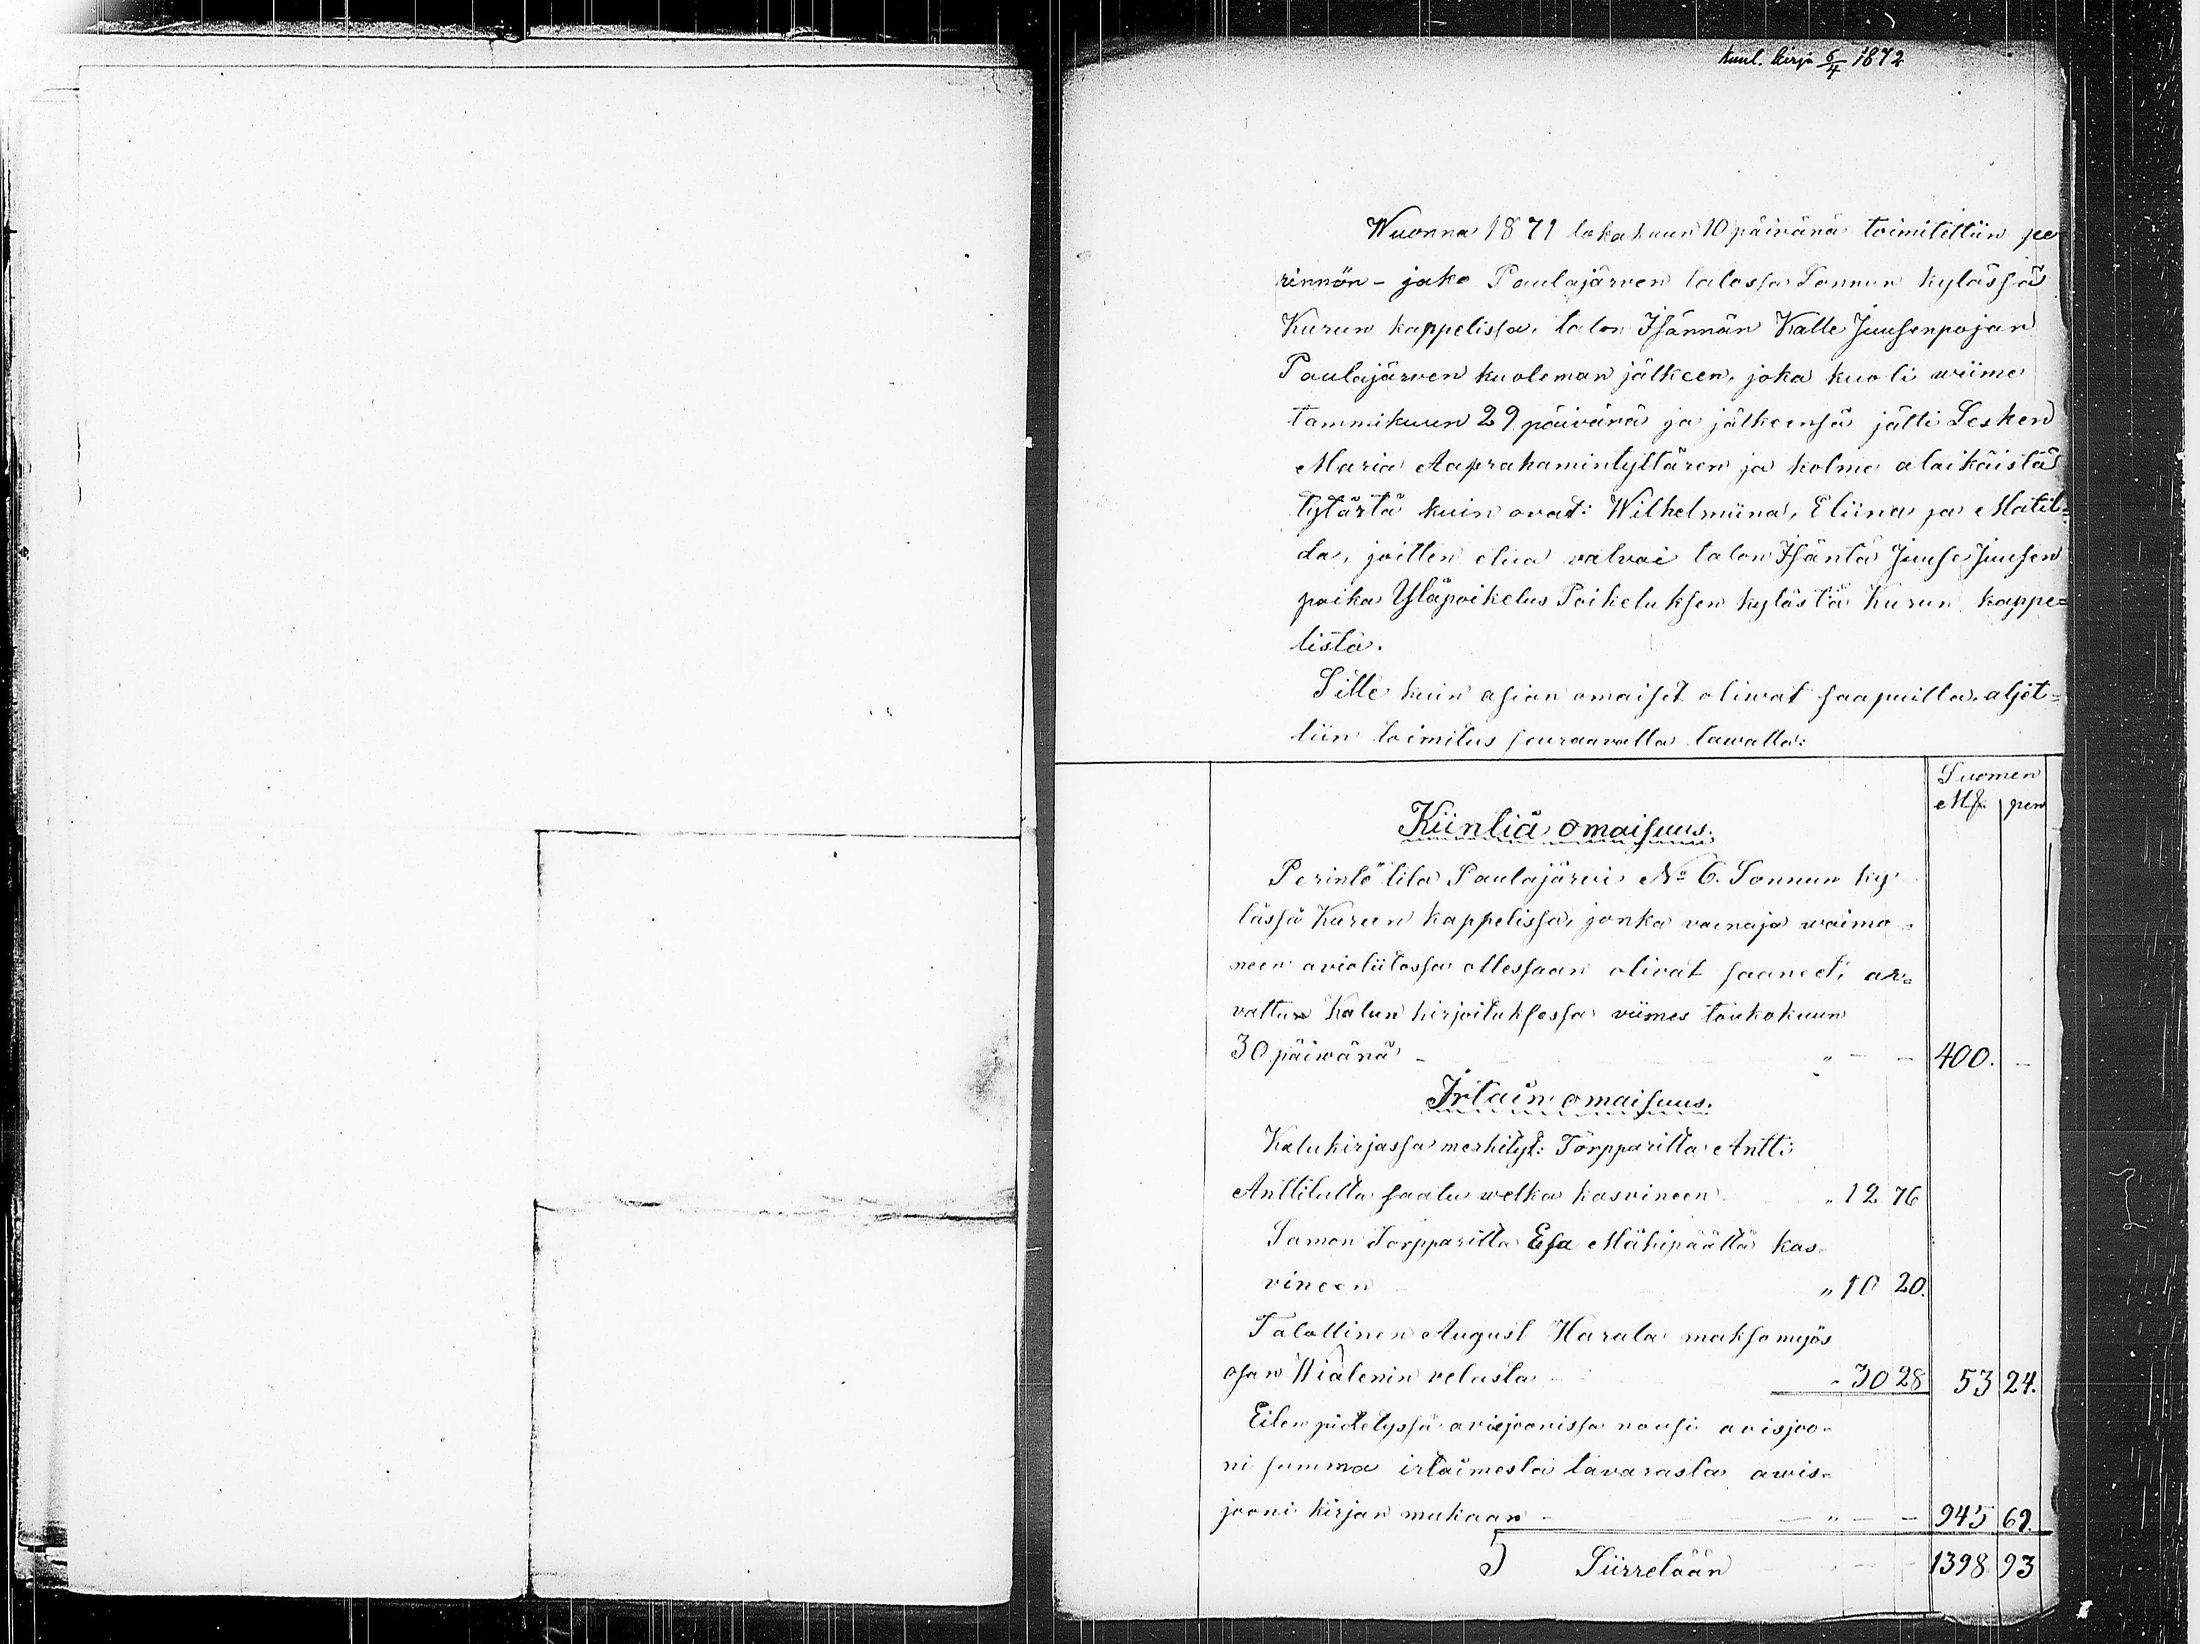 kuul. kirja 6/4 1872
Wuonna 1871 lokakuun 10 päivänä toimitettiin pe
rinnön-jako Paulajärven talossa Sonnun kylässä
Kurun kappelissa, talon Isännän Kalle Juusenpojan
Paulajärven kuoleman jälkeen, joka kuoli wiime
tammikuun 29 päivänä ja jälkeensä jätti Lesken
Maria Aaprahamintyttären ja kolme alaikäistä
tytärtä kuin ovat: Wilhelmiina, Eliina ja Matil=
da, joitten etua valvoi talon Isäntä Juuse Juusen
poika Yläpoikelus Poikeluksen kylästä Kurun kappe=
lista.
Sitte kuin asian omaiset oliwat saapuilla, aljet=
tiin toimitus seuraavalla tawalla:
Suomen
Mk. pen
Kiinliä omaisuus.
Perintö tila Paulajärvi No 6. Sonnun ky
lässä Kurun kappelissa, jonka vainaja waimo=
neen avioliitossa ollessaan olivat saaneet, ar=
vattu Kalun kirjoituksessa viimes toukokuun
30 päiwänä - " - - 400. -
Irtain omaisuus.
Kalukirjassa merkityt: Torpparilta Antti
Anttilalta saatu welka kasvineen " 12 76
Samon Torpparilta Esa Mähipäältä kas=
vineen " 10 20.
Talollinen August Harala maksamyös
osan Wialenin velasta - 30 28 53 24.
Eilen pidetyssä avisjoonissa nousi avisjoo=
ni summa irtaimesta tavarasta awis=
jooni kirjan mukaan - - " - - 945 69.
5 Siirretään 1398 93